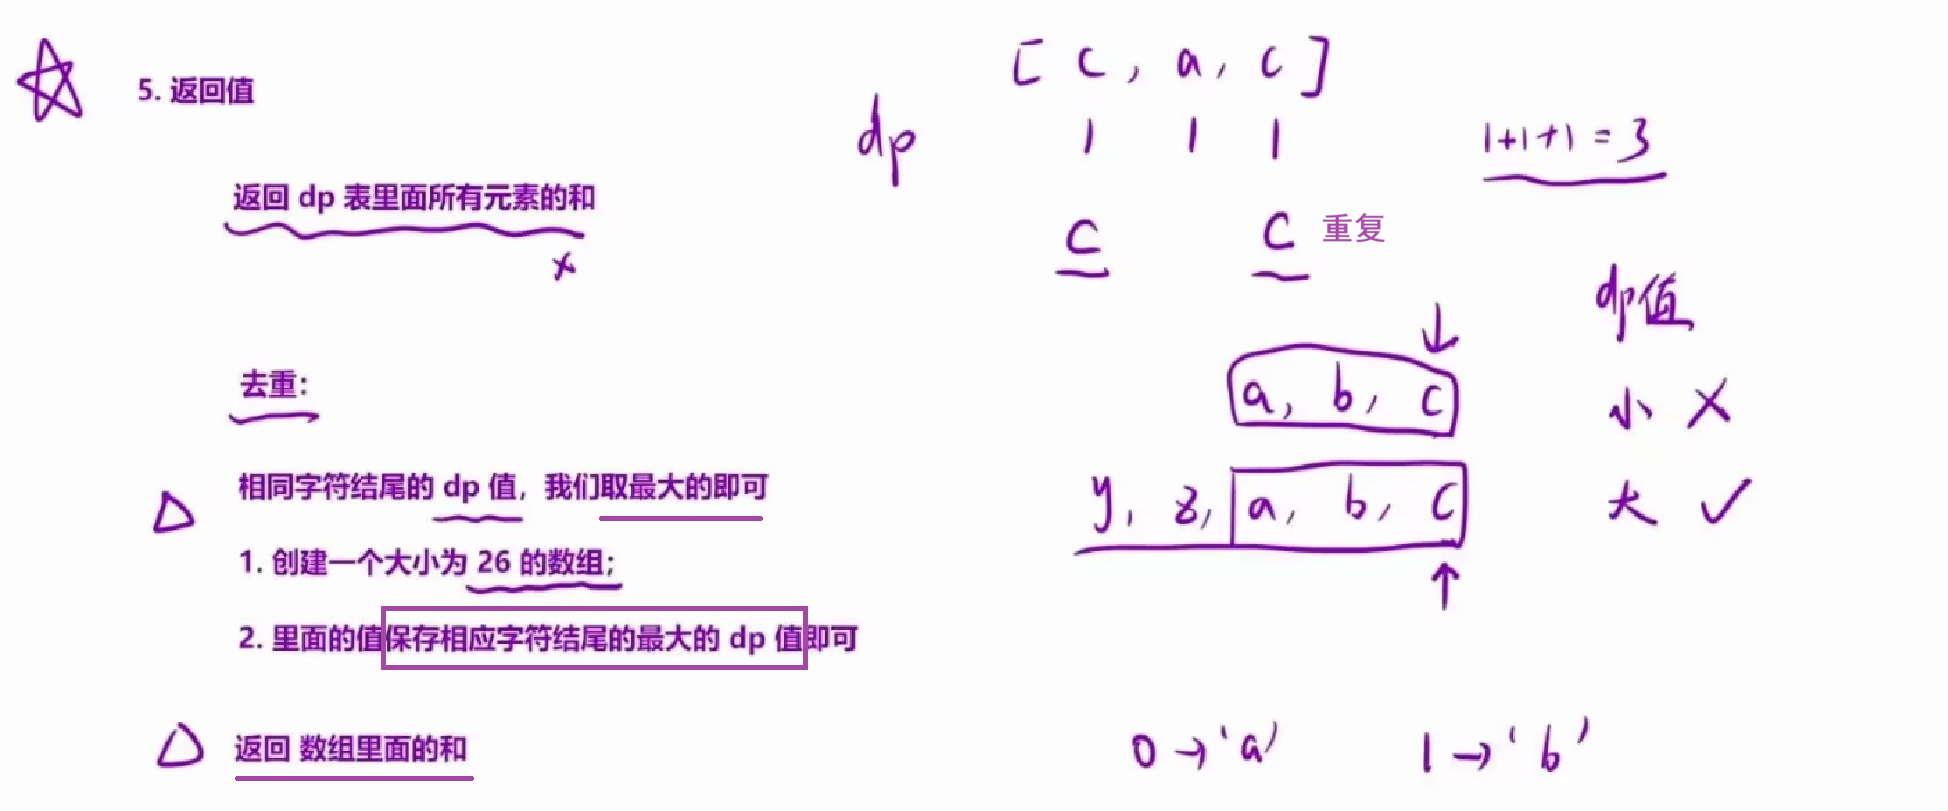 5. 返回值
返回 dp 表里面所有元素的和
x
去重：
相同字符结尾的 dp 值，我们取最大的即可
1. 创建一个大小为 26 的数组；
2. 里面的值保存相应字符结尾的最大的 dp 值即可
返回 数组里面的和
[ c, a, c ]
dp 1 1 1
1+1+1=3
c c 重复
dp值
a, b, c 小 ×
y, z, a, b, c 大 ✓
0→'a' 1→'b'